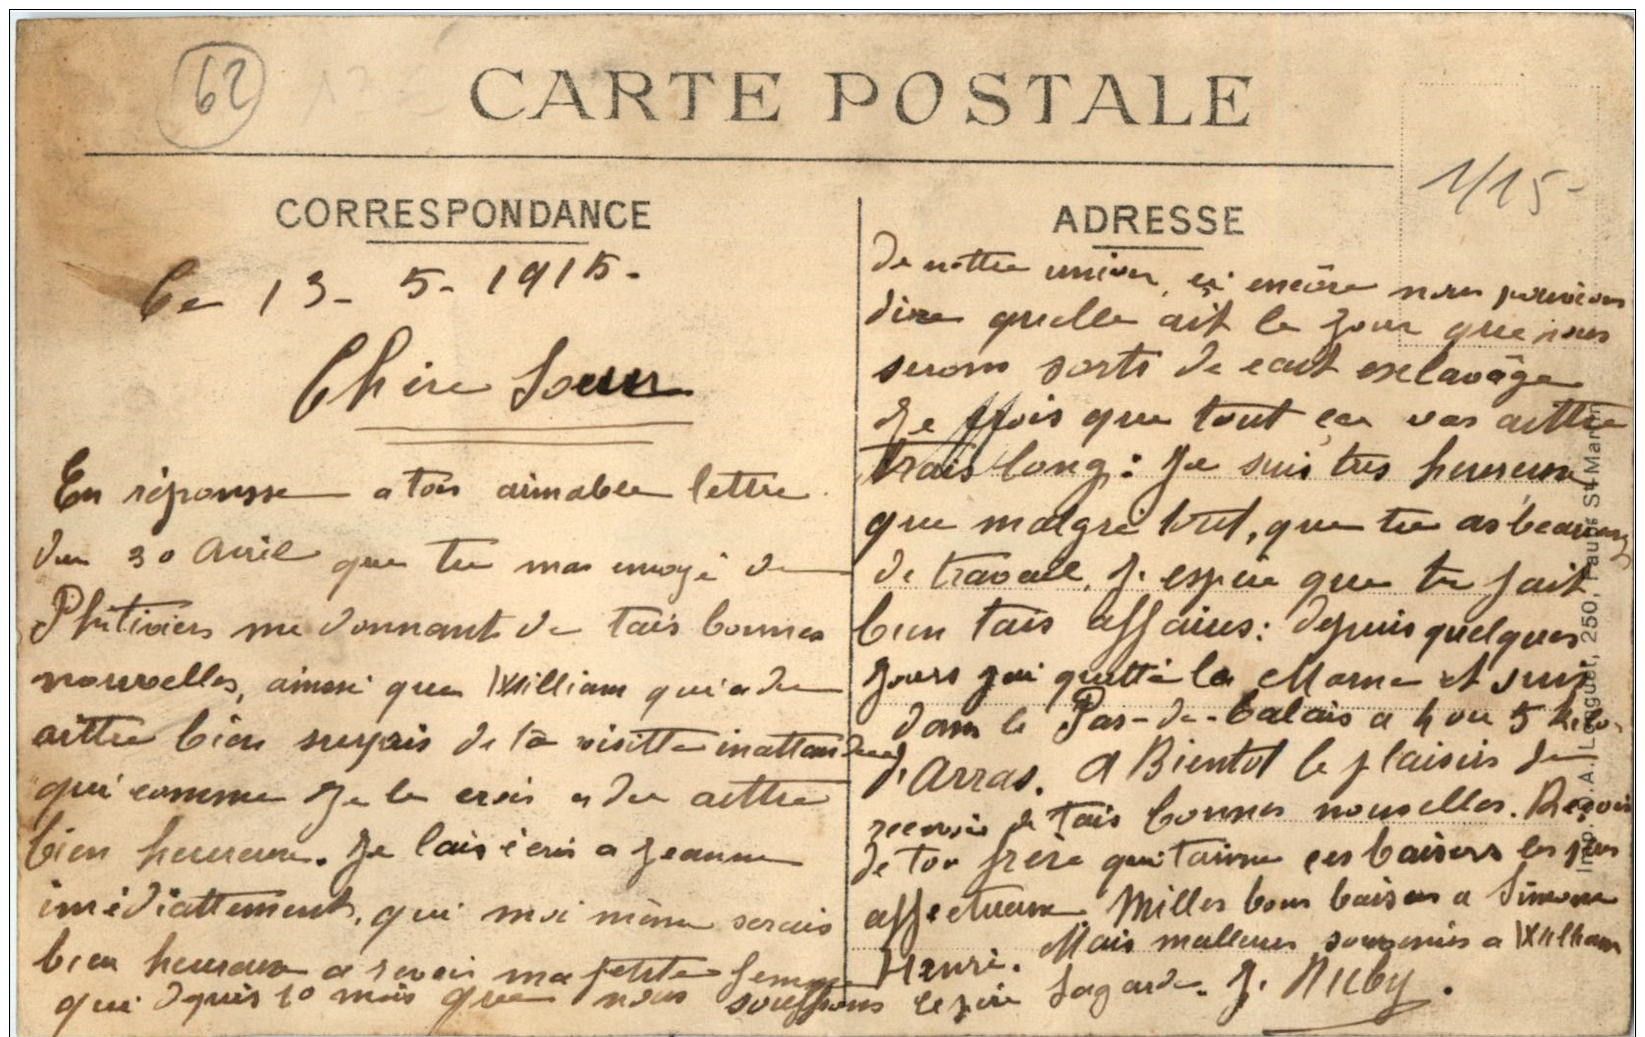 62
CARTE POSTALE
1/15-
CORRESPONDANCE
Le 13-5-1915-
Chère Soeur
En réponsse a ton aimablee lettre
du 30 Avril que tu mas envoyé de
Phitiviers me donnant de tais bonnes
nouvelles, ainsi que William qui a du
aittre bien surpris de la visitte inattandue
qui comme Je le crois a du aittre
bien heureux. Je lais écris a Jeanne
imédiattement, qui moi même serais
bien heureux a revoir ma petite femme
qui depuis 10 mois que nous souffrons
ADRESSE
de nottre union, si encôre nous pouvions
dire quelle ait le Jour que nous
serons sorti de cait esclavâge
Je crois que tout ça vas aittre
trais long: Je suis tres heureux
que malgré tout, que tu as beaucoup
de travail, Je espère que tu fait
bien tais affaires: depuis quelques
Jours Jai quitté la Marne et suis
dans le Pas-de-Calais a 4 ou 5 kilo.
d'Arras. A Bientot le plaisir de
recevoir de tais bonnes nouvelles. Recois
de ton frère qui taime ces baisers les plus
affectueux Milles bons baisers a Simone
Henri. Mais malleurs souvenirs a William
le père Lagarde. J.
Imp. D.A. Longuet, 250, Faubg St-Martin